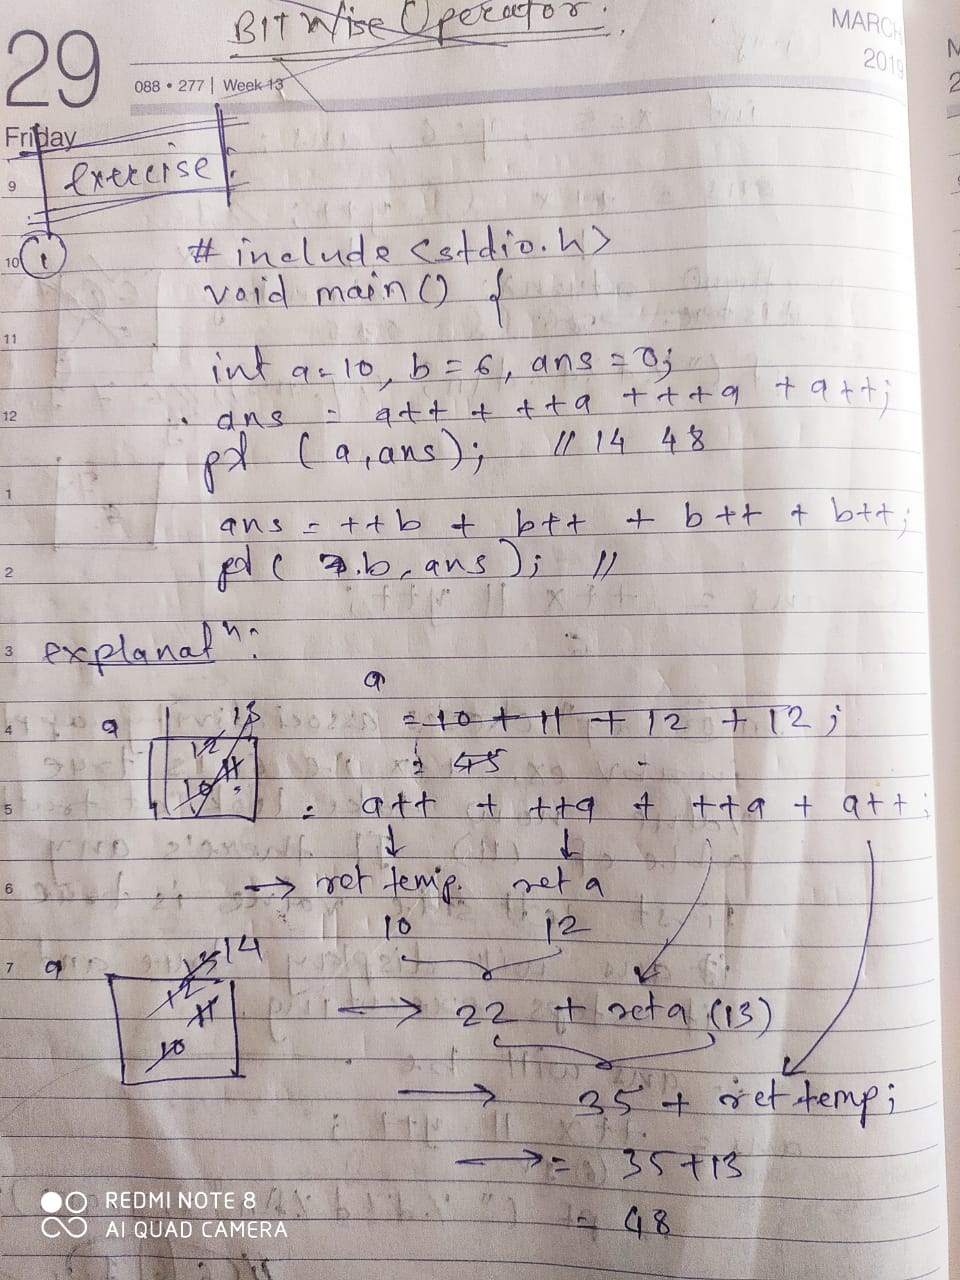 BIT Wise Operator.
MARCH
2019
29
088 • 277 | Week 13
Friday
exercise
9
10
1
# include <stdio.h>
void main() {
11
int a=10, b=6, ans=0;
12
ans = a++ + ++a + ++a + a++;
pf (a, ans); // 14 48
1
ans = ++b + b++ + b++ + b++;
2
pf ( b, ans); //
3
explanatⁿ:
a
4
a
13
12
11
10
= 10 + 11 + 12 + 12;
= 45
5
= a++ + ++a + ++a + a++;
6
→ ret temp. ret a
10 12
7
a
14
13
12
11
10
→ 22 + ret a (13)
→ 35 + ret temp;
→ = 35+13
= 48
REDMI NOTE 8
AI QUAD CAMERA